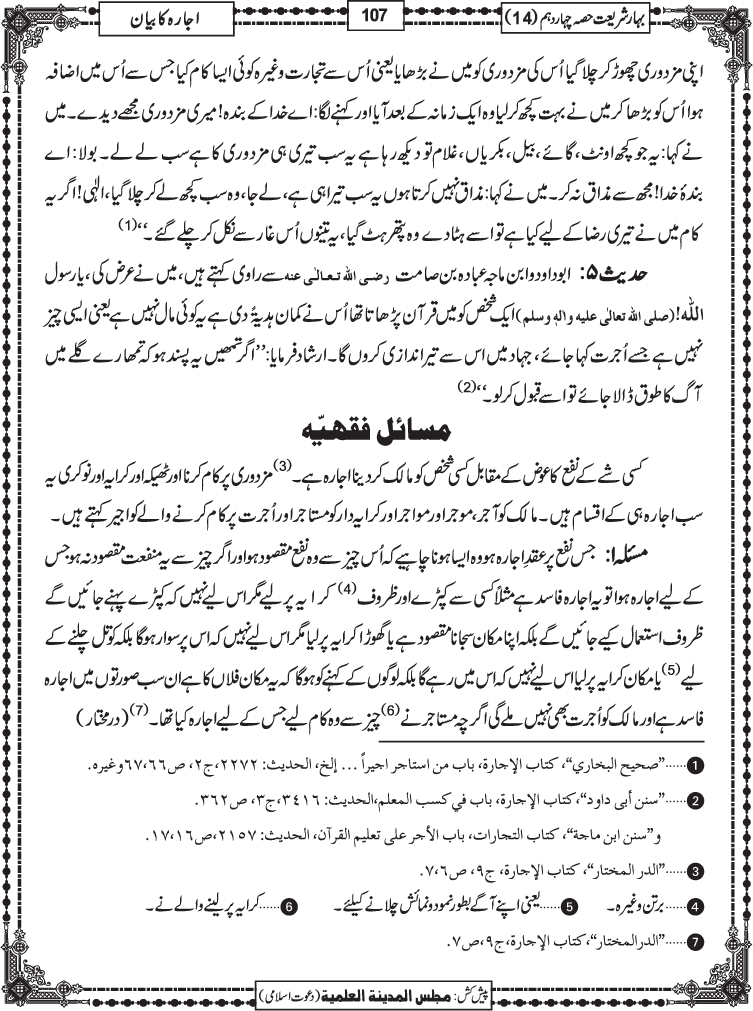 بہارِشریعت حصہ چہاردہم (14)
107
اجارہ کا بیان
اپنی مزدوری چھوڑ کر چلا گیا اُس کی مزدوری کو میں نے بڑھایا یعنی اُس سے تجارت وغیرہ کوئی ایسا کام کیا جس سے اُس میں اضافہ
ہوا اُس کو بڑھا کر میں نے بہت کچھ کرلیا وہ ایک زمانہ کے بعد آیا اور کہنے لگا: اے خدا کے بندہ! میری مزدوری مجھے دیدے۔ میں
نے کہا: یہ جو کچھ اونٹ، گائے، بیل، بکریاں، غلام تو دیکھ رہا ہے یہ سب تیری ہی مزدوری کا ہے سب لے لے۔ بولا: اے
بندۂ خدا! مجھ سے مذاق نہ کر۔ میں نے کہا: مذاق نہیں کرتا ہوں یہ سب تیرا ہی ہے، لے جا، وہ سب کچھ لے کر چلا گیا، الٰہی! اگر یہ
کام میں نے تیری رضا کے لیے کیا ہے تو اسے ہٹادے وہ پتھر ہٹ گیا، یہ تینوں اُس غار سے نکل کر چلے گئے۔‘‘(1)
حدیث ۵: ابوداود وابن ماجہ عبادہ بن صامت رضی اللہ تعالٰی عنہ سے راوی کہتے ہیں، میں نے عرض کی، یارسول
اللہ! (صلی اللہ تعالٰی علیہ واٰلہٖ وسلم) ایک شخص کو میں قرآن پڑھاتا تھا اُس نے کمان ہدیۃً دی ہے یہ کوئی مال نہیں ہے یعنی ایسی چیز
نہیں ہے جسے اُجرت کہا جائے، جہاد میں اس سے تیراندازی کروں گا۔ ارشاد فرمایا: ’’اگر تمھیں یہ پسند ہو کہ تمھارے گلے میں
آگ کا طوق ڈالا جائے تو اسے قبول کرلو۔‘‘(2)
مسائل فقهيّه
کسی شے کے نفع کا عوض کے مقابل کسی شخص کو مالک کردینا اجارہ ہے۔(3) مزدوری پر کام کرنا اور ٹھیکہ اور کرایہ اور نوکری یہ
سب اجارہ ہی کے اقسام ہیں۔ مالک کو آجر، موجر اور مواجر اور کرایہ دار کو مستاجر اور اُجرت پر کام کرنے والے کو اجیر کہتے ہیں۔
مسئلہ ۱: جس نفع پر عقدِ اجارہ ہو وہ ایسا ہونا چاہیے کہ اُس چیز سے وہ نفع مقصود ہو اور اگر چیز سے یہ منفعت مقصود نہ ہو جس
کے لیے اجارہ ہوا تو یہ اجارہ فاسد ہے مثلاً کسی سے کپڑے اور ظروف(4) کرایہ پر لیے مگر اس لیے نہیں کہ کپڑے پہنے جائیں گے
ظروف استعمال کیے جائیں گے بلکہ اپنا مکان سجانا مقصود ہے یا گھوڑا کرایہ پر لیا مگر اس لیے نہیں کہ اس پر سوار ہوگا بلکہ کوتل چلنے کے
لیے(5) یا مکان کرایہ پر لیا اس لیے نہیں کہ اس میں رہے گا بلکہ لوگوں کے کہنے کو ہوگا کہ یہ مکان فلاں کا ہے ان سب صورتوں میں اجارہ
فاسد ہے اور مالک کو اُجرت بھی نہیں ملے گی اگرچہ مستاجر نے(6) چیز سے وہ کام لیے جس کے لیے اجارہ کیا تھا۔(7) (درمختار)
1......”صحيح البخاري“، كتاب الإجارة، باب من استاجر اجيراً ... إلخ، الحديث: ٢٢٧٢، ج٢، ص٦٦،٦٧ وغيره.
2......”سنن أبي داود“، كتاب الإجارة، باب في كسب المعلم، الحديث: ٣٤١٦، ج٣، ص٣٦٢.
و”سنن ابن ماجة“، كتاب التجارات، باب الأجر على تعليم القرآن، الحديث: ٢١٥٧، ص١٦،١٧.
3......”الدر المختار“، كتاب الإجارة، ج٩، ص٦،٧.
4......برتن وغیرہ۔ 5......یعنی اپنے آگے بطور نمود و نمائش چلانے کیلئے۔ 6......کرایہ پر لینے والے نے۔
7......”الدرالمختار“، كتاب الإجارة، ج٩، ص٧.
پیش کش: مجلس المدينة العلمية (دعوت اسلامی)